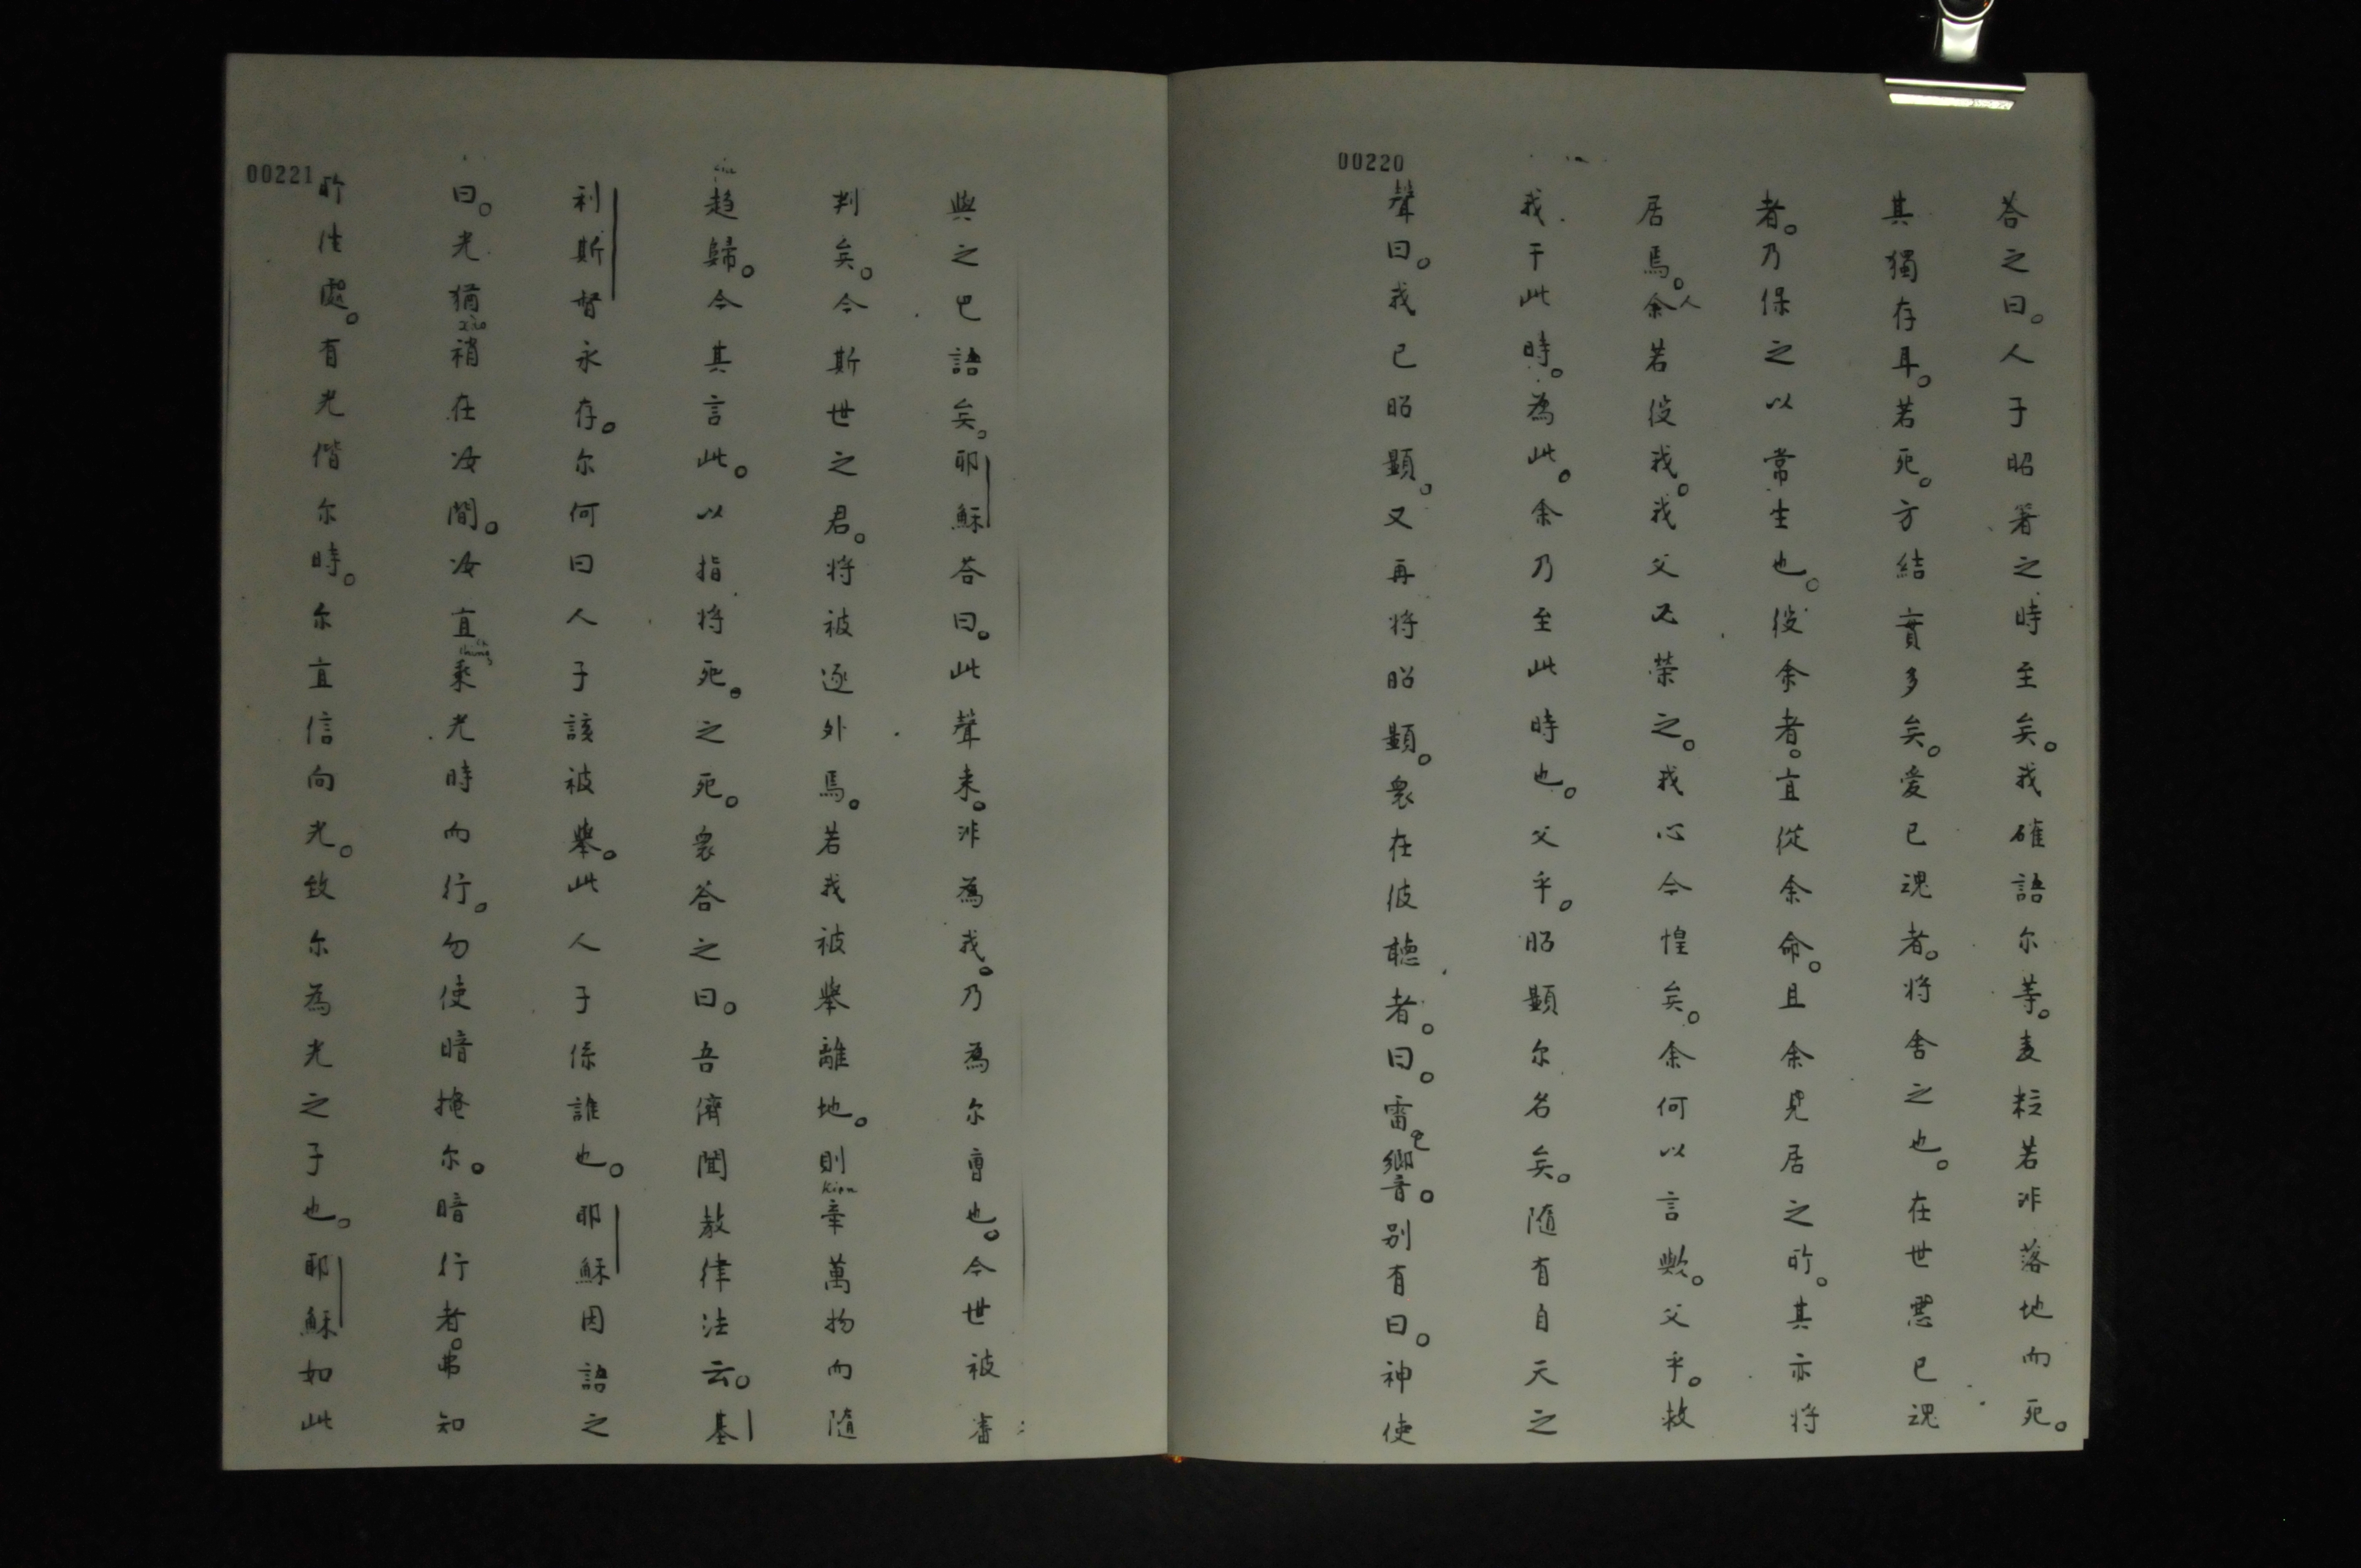 00220
答之曰。人子昭著之時至矣。我確語尔等。麦粒若非落地而死。
其獨存耳。若死。方結實多矣。爱已魂者。将舍之也。在世惡已魂
者。乃保之以常生也。役余者。宜從余命。且余見居之所。其亦将
居焉。余人若役我。我父必荣之。我心今惶矣。余何以言歟。父乎。救
我于此時。為此。余乃至此時也。父乎。昭顯尔名矣。随有自天之
聲曰。我已昭顯。又再将昭顯。衆在彼聽者。曰。雷也響。别有曰。神使
00221
與之已語矣。耶穌答曰。此聲来。非為我。乃為尔曹也。今世被審
判矣。今斯世之君。将被逐外焉。若我被舉離地。則牽萬物而随
趋歸。今其言此。以指将死。之死。衆答之曰。吾儕聞教律法云。基
利斯督永存。尔何曰人子該被舉。此人子係誰也。耶穌因語之
曰。光猶稍在汝間。汝宜乘光時而行。勿使暗掩尔。暗行者。弗知
所往處。有光偕尔時。尔宜信向光。致尔為光之子也。耶穌如此